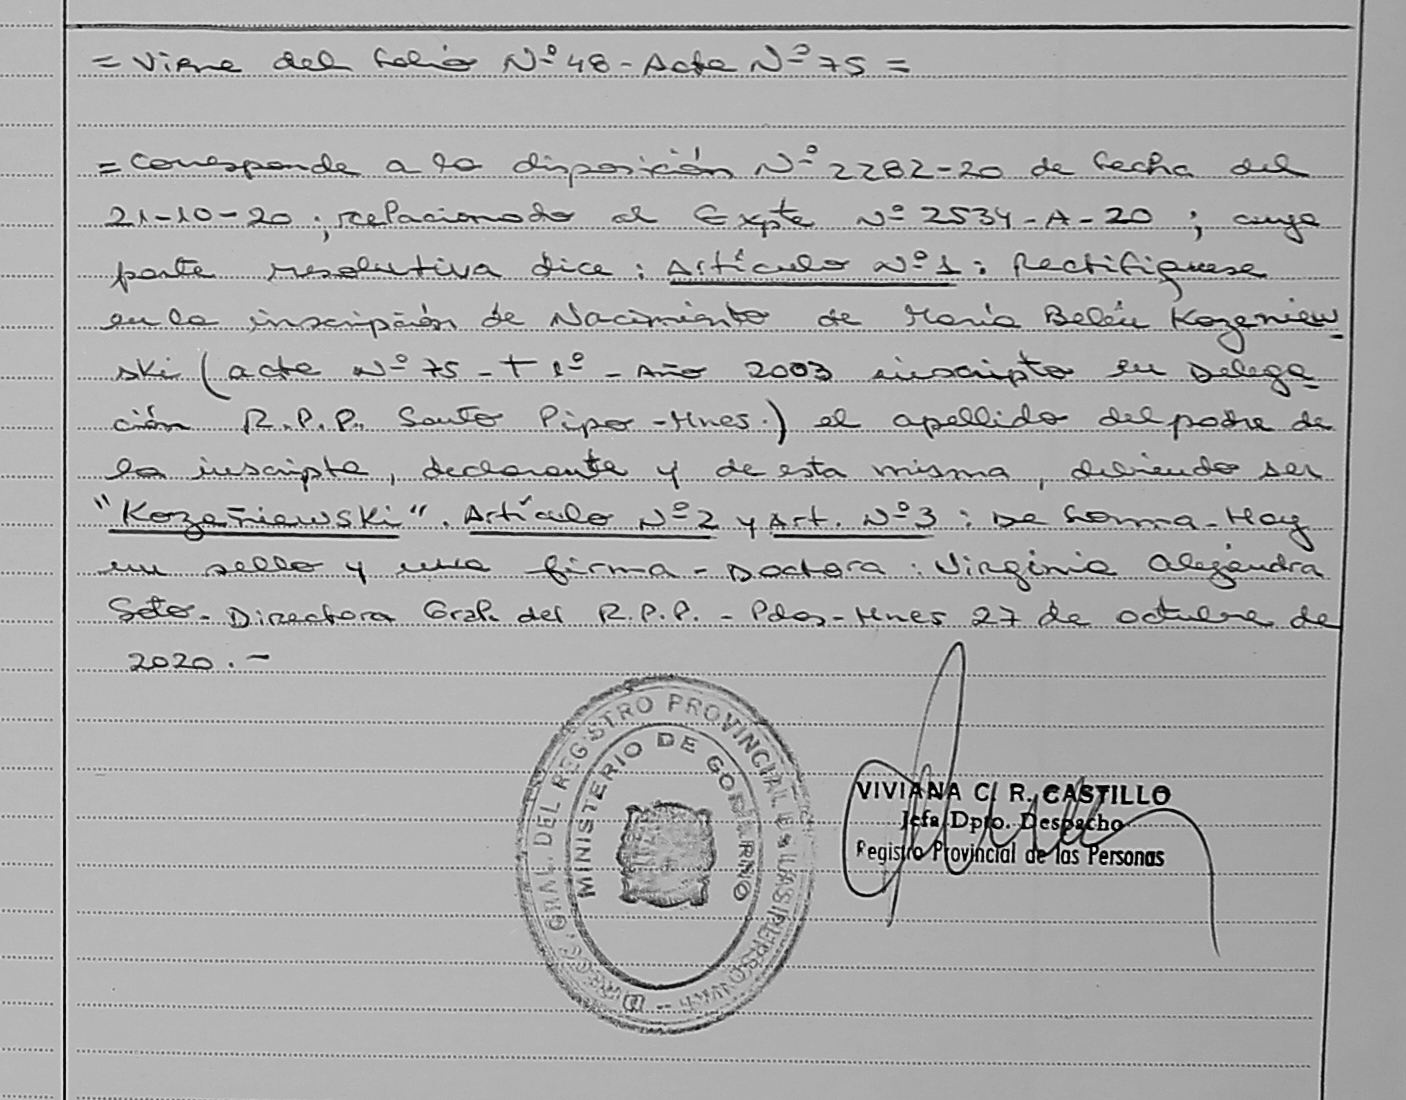 = Viene del folio Nº 48 - Acta Nº 75 =
= Corresponde a la disposición Nº 2282-20 de fecha del
21-10-20 ; relacionado al Expte Nº 2534-A-20 ; cuya
parte resolutiva dice : Artículo Nº 1 : Rectifiquese
en la inscripción de Nacimiento de María Belén Kozeniew
ski (acta Nº 75 - t 1º - Año 2003 inscripto en Delega
ción R.P.P. Santo Pipo - Mnes.) el apellido del padre de
la inscripta, declarante y de esta misma, debiendo ser
"Kozeñiewski". Artículo Nº 2 y Art. Nº 3 : De forma - Hay
un sello y una firma - Doctora : Virginia Alejandra
Soto - Directora Gral. del R.P.P. - Pdas - Mnes 27 de octubre de
2020 . -
DIRECC. GRAL. DEL REGISTRO PROVINCIAL DE LAS PERSONAS
MINISTERIO DE GOBIERNO
VIVIANA C. R. CASTILLO
Jefa Dpto. Despacho
Registro Provincial de las Personas